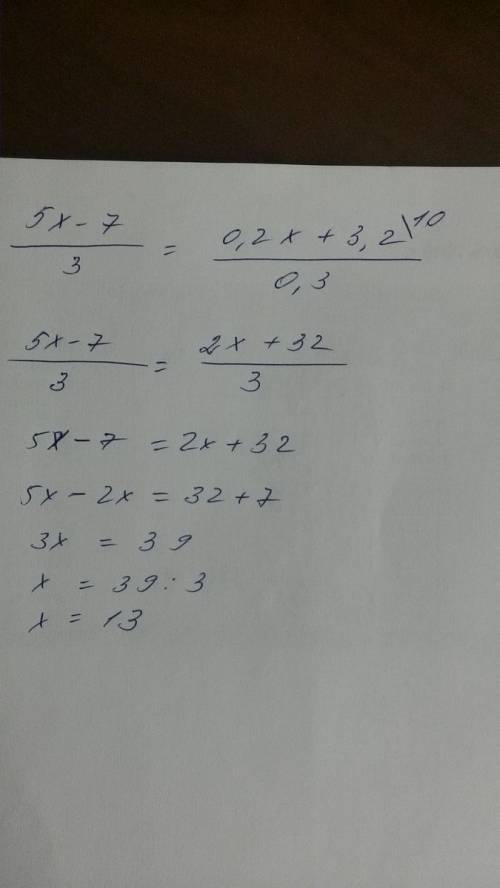 5x - 7 / 3 = 0,2x + 3,2\10 / 0,3
5x - 7 / 3 = 2x + 32 / 3
5x - 7 = 2x + 32
5x - 2x = 32 + 7
3x = 39
x = 39 : 3
x = 13